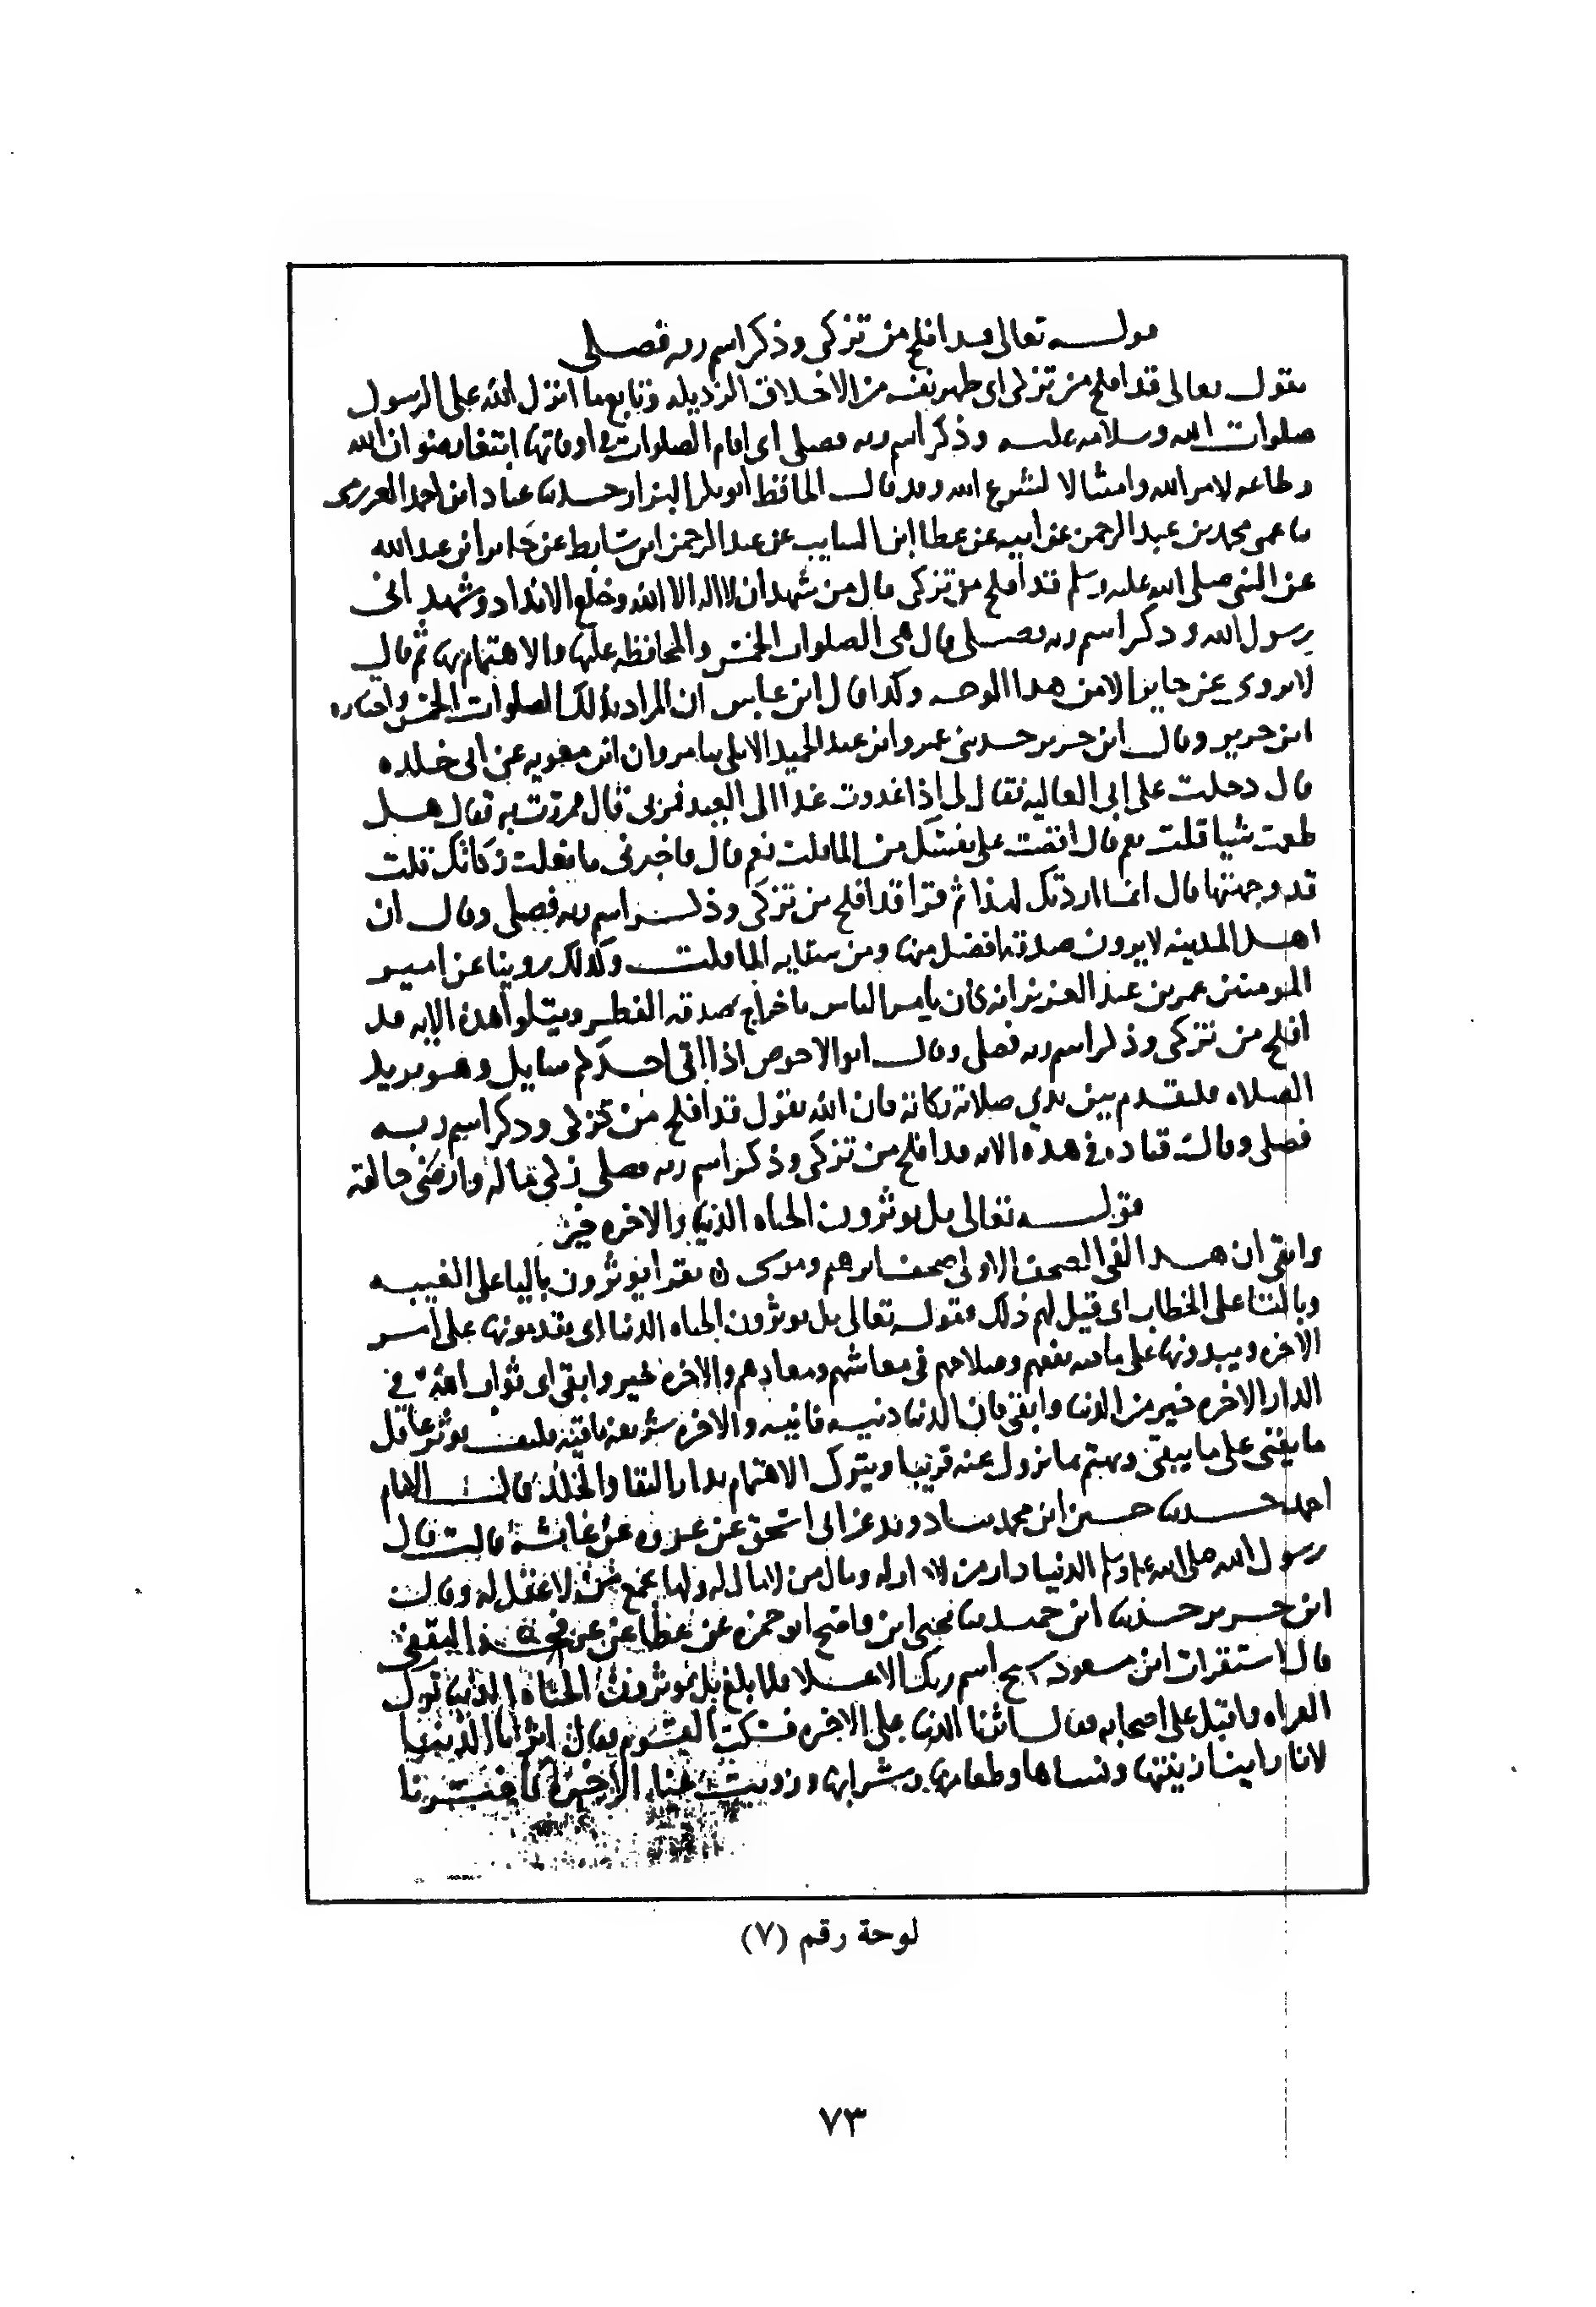 قولـــه تعالى قد افلح من تزكى وذكر اسم ربه فصــلى
يقول تعالى قد افلح من تزكى اى طهر نفسه من الاخلاق الرذيله وتابع ما انزل الله على الرسول
صلوات الله وسلامه عليه وذكر اسم ربه فصلى اى اقام الصلوات فى اوقاتها ابتغا رضوان الله
وطاعه لامر الله وامتثالا لشرع الله وقد قال الحافظ ابو بكر البزار حدثنا عباد ابن احمد العرزمى
ما عمى محمد بن عبد الرحمن عن ابيه عن عطا ابن السايب عن عبد الرحمن ابن سابط عن جابر ابن عبد الله
عن النبى صلى الله عليه وسلم قد افلح من تزكى قال من شهد ان لا اله الا الله وخلع الانداد وشهد انى
رسول الله وذكر اسم ربه فصلى قال هى الصلوات الخمس والمحافظه عليها والاهتمام بها ثم قال
لا يروى عن جابر الا من هذا الوجه وكذا قال ابن عباس ان المراد بذلك الصلوات الخمس واختاره
ابن جرير وقال ابن جرير حدثنى عمرو ابن عبد الحميد الابلى ثنا مروان ابن معويه عن ابى خلده
قال دخلت على ابى العاليه فقال لى اذا غدوت غدا الى العيد فمر بى قال فمررت به فقال هل
طعمت شيا قلت نعم قال افضت على نفسك من الما قلت نعم قال فاخبرنى ما فعلت زكاتك قلت
قد وجهتها قال انما اردتك لهذا ثم قرا قد افلح من تزكى وذكر اسم ربه فصلى وقال ان
اهل المدينه لا يرون صدقه افضل منها ومن سقايه الما قلت وكذلك روينا عن امير
المومنين عمر بن عبد العزيز انه كان يامر الناس باخراج صدقه الفطر ويتلوا هذه الايه قد
افلح من تزكى وذكر اسم ربه فصلى وقال ابو الاحوص اذا اتى احدكم سايل وهو يريد
الصلاه فليقدم بين يدي صلاته زكاته فان الله يقول قد افلح من تزكى وذكر اسم ربه
فصلى وقال قتاده فى هذه الايه قد افلح من تزكى وذكر اسم ربه فصلى زكى ماله وارضى خالقه
قولـــه تعالى بل يوثرون الحياه الدنيا والاخره خير
وابقى ان هذا لفى الصحف الاولى صحف ابرهيم وموسى يقرا يوثرون باليا على الغيبه
وبالتا على الخطاب اى قيل لهم ذلك فقوله تعالى بل يوثرون الحياه الدنيا اى يقدمونها على امر
الاخره ويبدونها على ما فيه نفعهم وصلاحهم فى معاشهم ومعادهم والاخره خير وابقى اى ثواب الله فى
الدار الاخره خير من الدنيا وابقى فان الدنيا دنيه فانيه والاخره شريفه باقيه فكيف يوثر عاقل
ما يفنى على ما يبقى ويهتم بما يزول عنه قريبا ويترك الاهتمام بدار البقا والخلد قال الامام
احمد حدثنا حسين ابن محمد ثنا دويد عن ابى اسحق عن عروه عن عائشه قالت قال
رسول الله صلى الله عليه وسلم الدنيا دار من لا دار له ومال من لا مال له ولها يجمع من لا عقل له وقال
ابن جرير حدثنا ابن حميد ثنا يحيى ابن واضح ابو حمزه عن عطا عن عرفجه الثقفى
قال استقرات ابن مسعود سبح اسم ربك الاعلا فلما بلغ بل يوثرون الحياه الدنيا ترك
القراه واقبل على اصحابه فقال اثرنا الدنيا على الاخره فسكت القوم فقال اثرنا الدنيا
لانا راينا زينتها ونساها وطعامها وشرابها وزويت عنا الاخره فاخترنا
لوحة رقم (٧)
٧٣